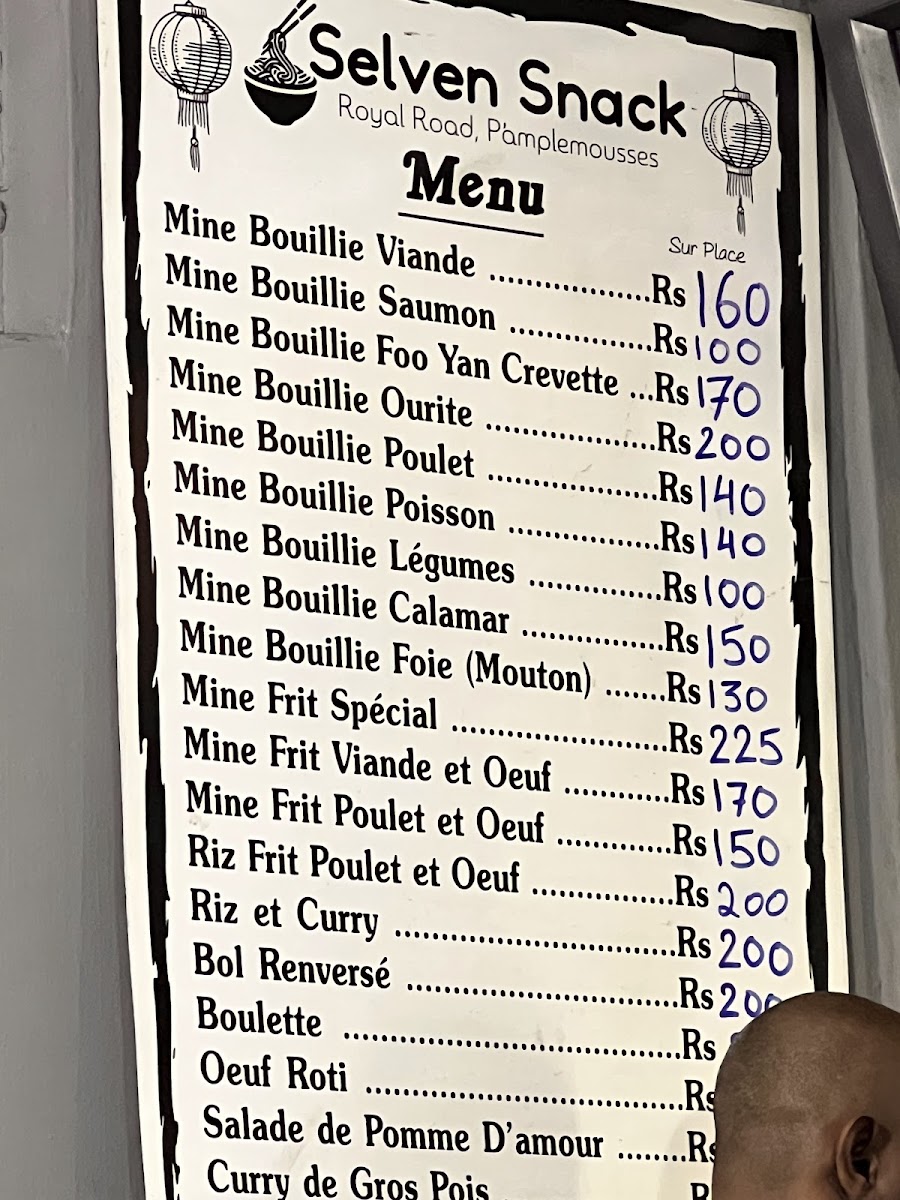 Selven Snack
Royal Road, Pamplemousses
Menu
Sur Place
Mine Bouillie Viande ..................Rs 160
Mine Bouillie Saumon ...............Rs 100
Mine Bouillie Foo Yan Crevette ...Rs 170
Mine Bouillie Ourite ...................Rs 200
Mine Bouillie Poulet ...................Rs 140
Mine Bouillie Poisson .................Rs 140
Mine Bouillie Légumes ...............Rs 100
Mine Bouillie Calamar ................Rs 150
Mine Bouillie Foie (Mouton) .......Rs 130
Mine Frit Spécial ........................Rs 225
Mine Frit Viande et Oeuf ............Rs 170
Mine Frit Poulet et Oeuf .............Rs 150
Riz Frit Poulet et Oeuf ................Rs 200
Riz et Curry ...............................Rs 200
Bol Renversé ..............................Rs 200
Boulette .....................................Rs
Oeuf Roti ...................................Rs
Salade de Pomme D'amour ........Rs
Curry de Gros Pois